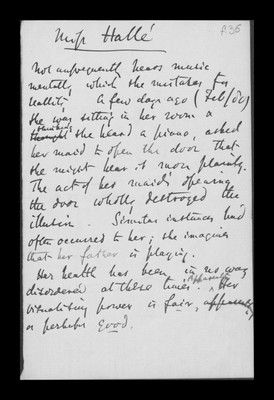 A.36
Miss Hallé
Not unfrequently hears music
mentally, which she mistakes for
reality. A few days ago (Feb/80)
she was sitting in her room &
thought she heard a piano, asked
her maid to open the door that
she might hear it more plainly.
The act of her maid's opening
the door wholly destroyed the
illusion. Similar instances had
often occurred to her; she imagines
that her father is playing.
Her health has been in no way
disordered at these times. Apparently Her
visualising power is fair, apparently
or perhaps good.